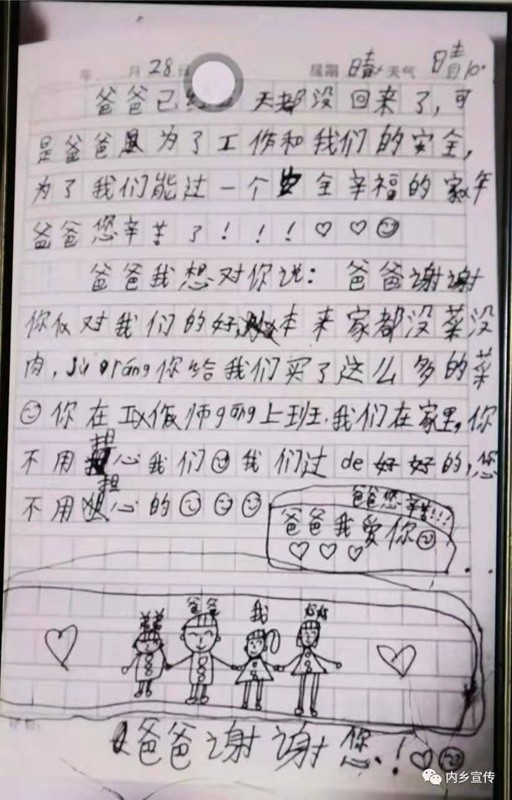 年 月 28日 星期 晴 天气 晴
爸爸已经 天都没回来了，可
是爸爸 为了工作和我们的安全，
为了我们能过一个 安全辛福的 年
爸爸您辛苦了！！！♡♡☺
爸爸我想对你说：爸爸谢谢
你 对我们的好， 本来家都没菜没
肉，jū rán你给我们买了这么多的菜
☺你在 gǎng上班，我们在家里，你
不用担心我们☺我们过de好好的，您
不用担心的☺☺☺
爸爸您辛苦!!!
爸爸我爱你☺
♡♡♡
爸爸 我
爸爸谢谢您！♡☺
内乡宣传